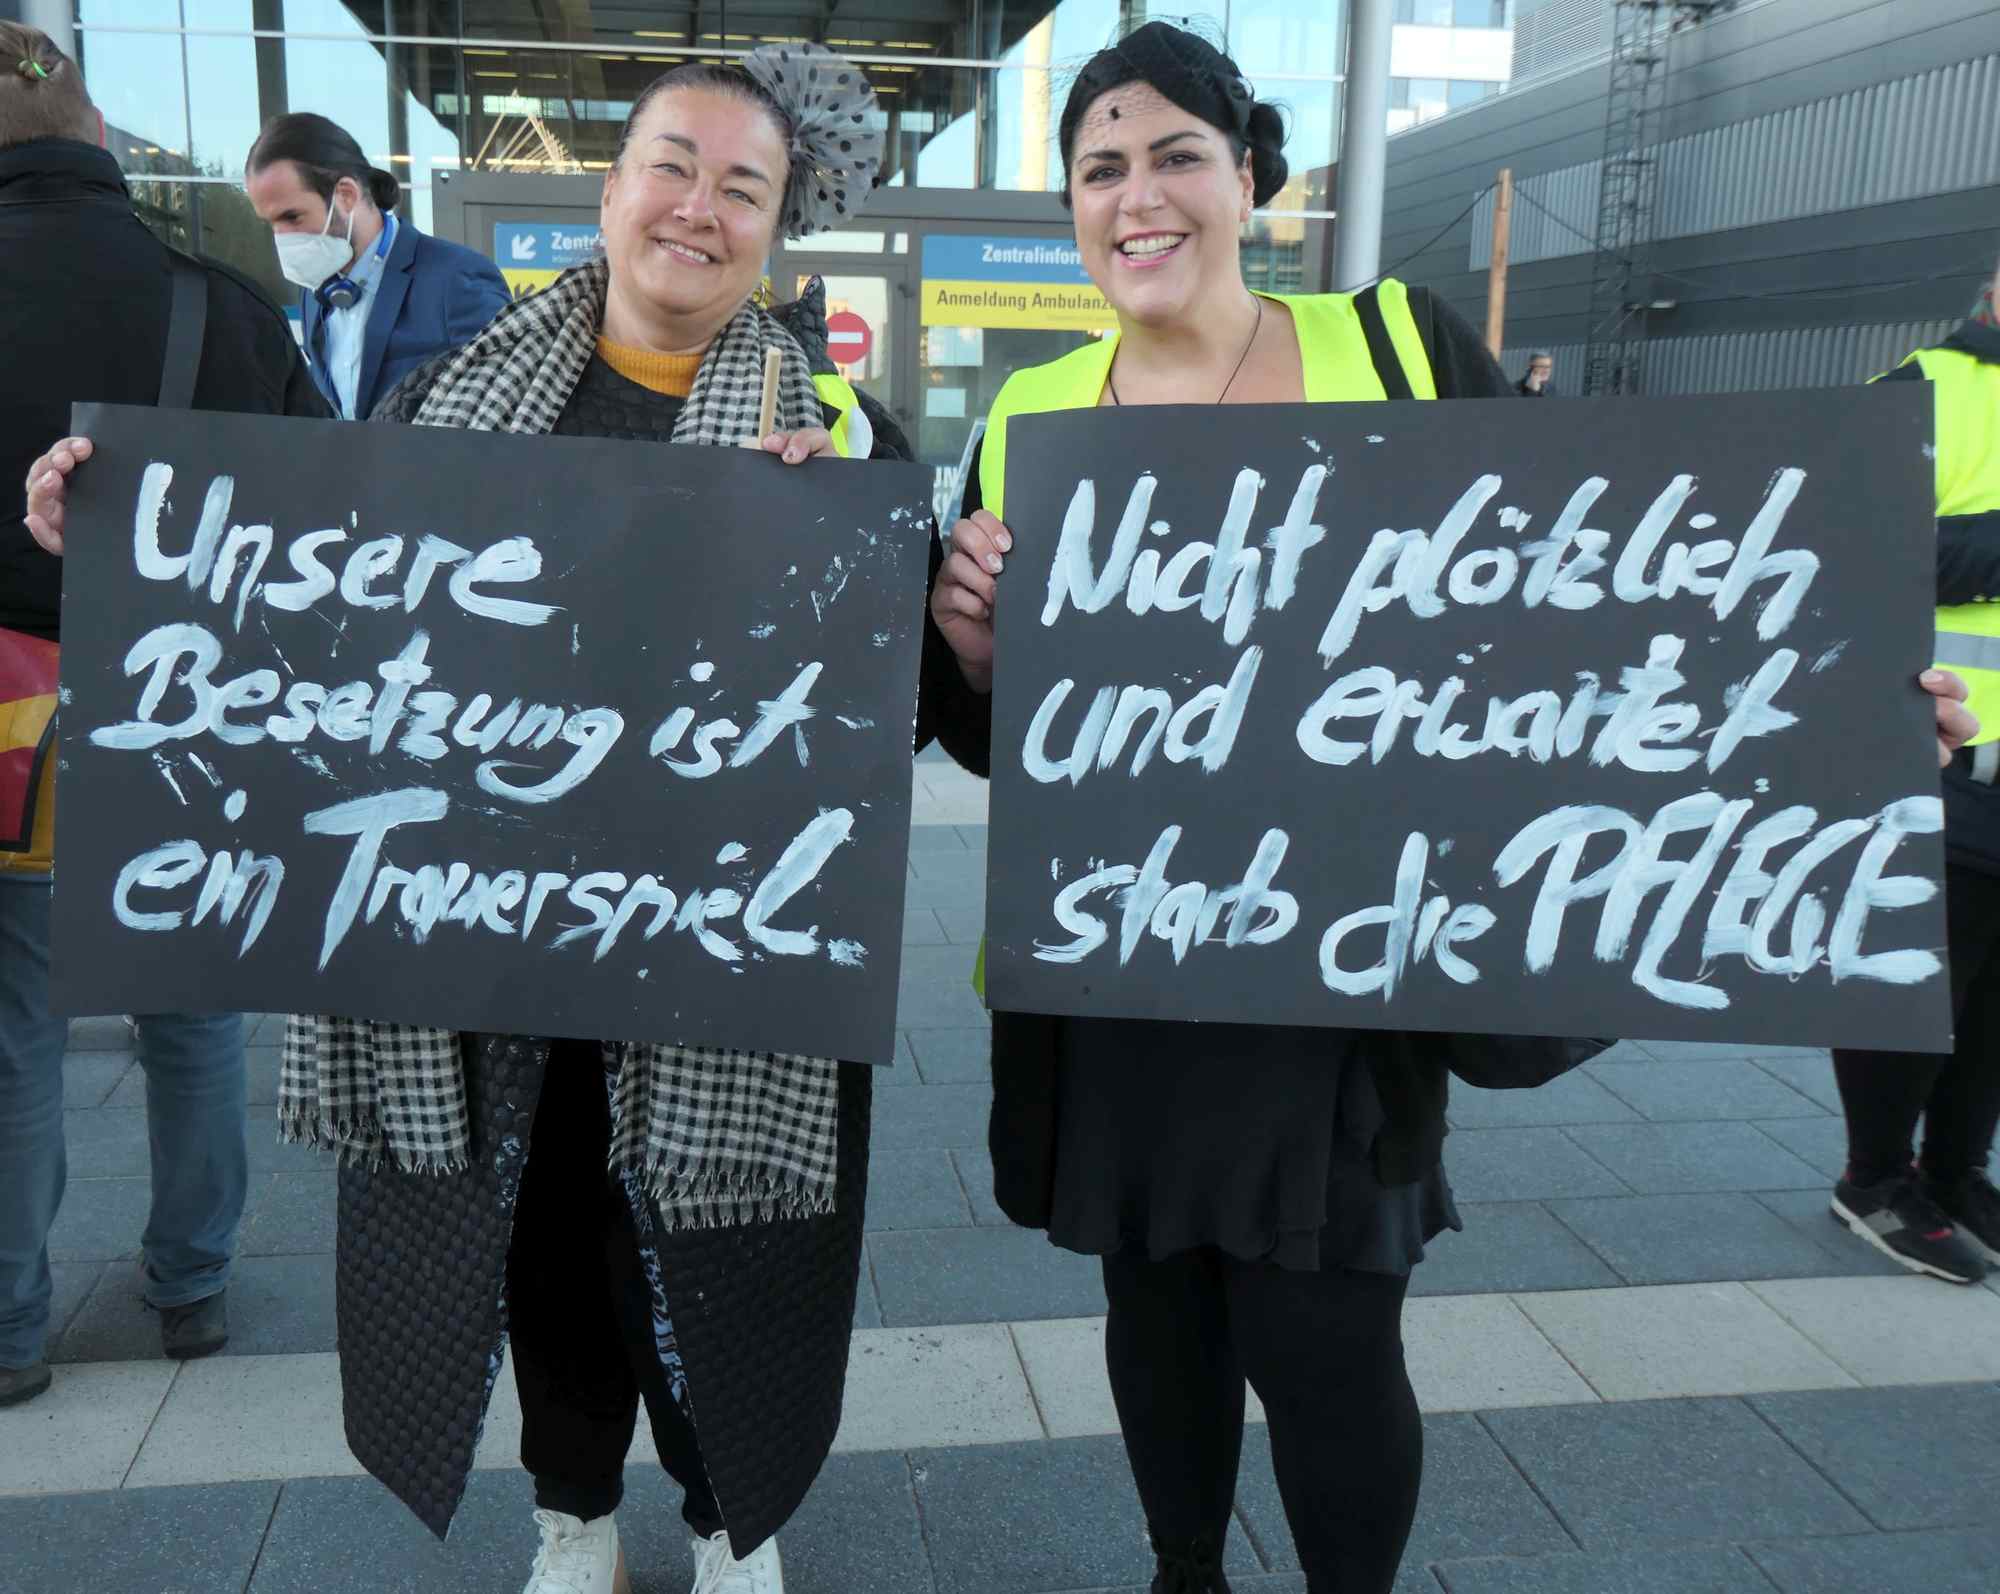 Zentr
Zentralinfor
Anmeldung Ambulanz
Unsere
Besetzung ist
ein Trauerspiel
Nicht plötzlich
und erwartet
starb die PFLEGE